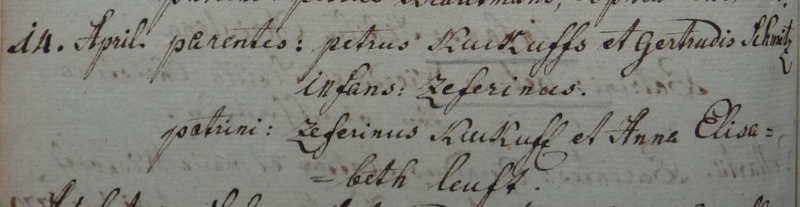 14. April. parentes: petrus KucKuffs et Gertrudis Schmitz
infans: Zeferinus.
patrini: Zeferinus KucKuff et Anna Elisa=
=beth leuft.